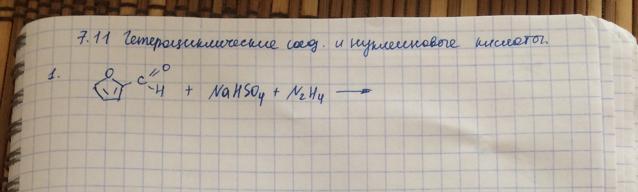 7.11 Гетероциклические соед. и нуклеиновые кислоты.
1. O C O H + NaHSO4 + N2H4 →